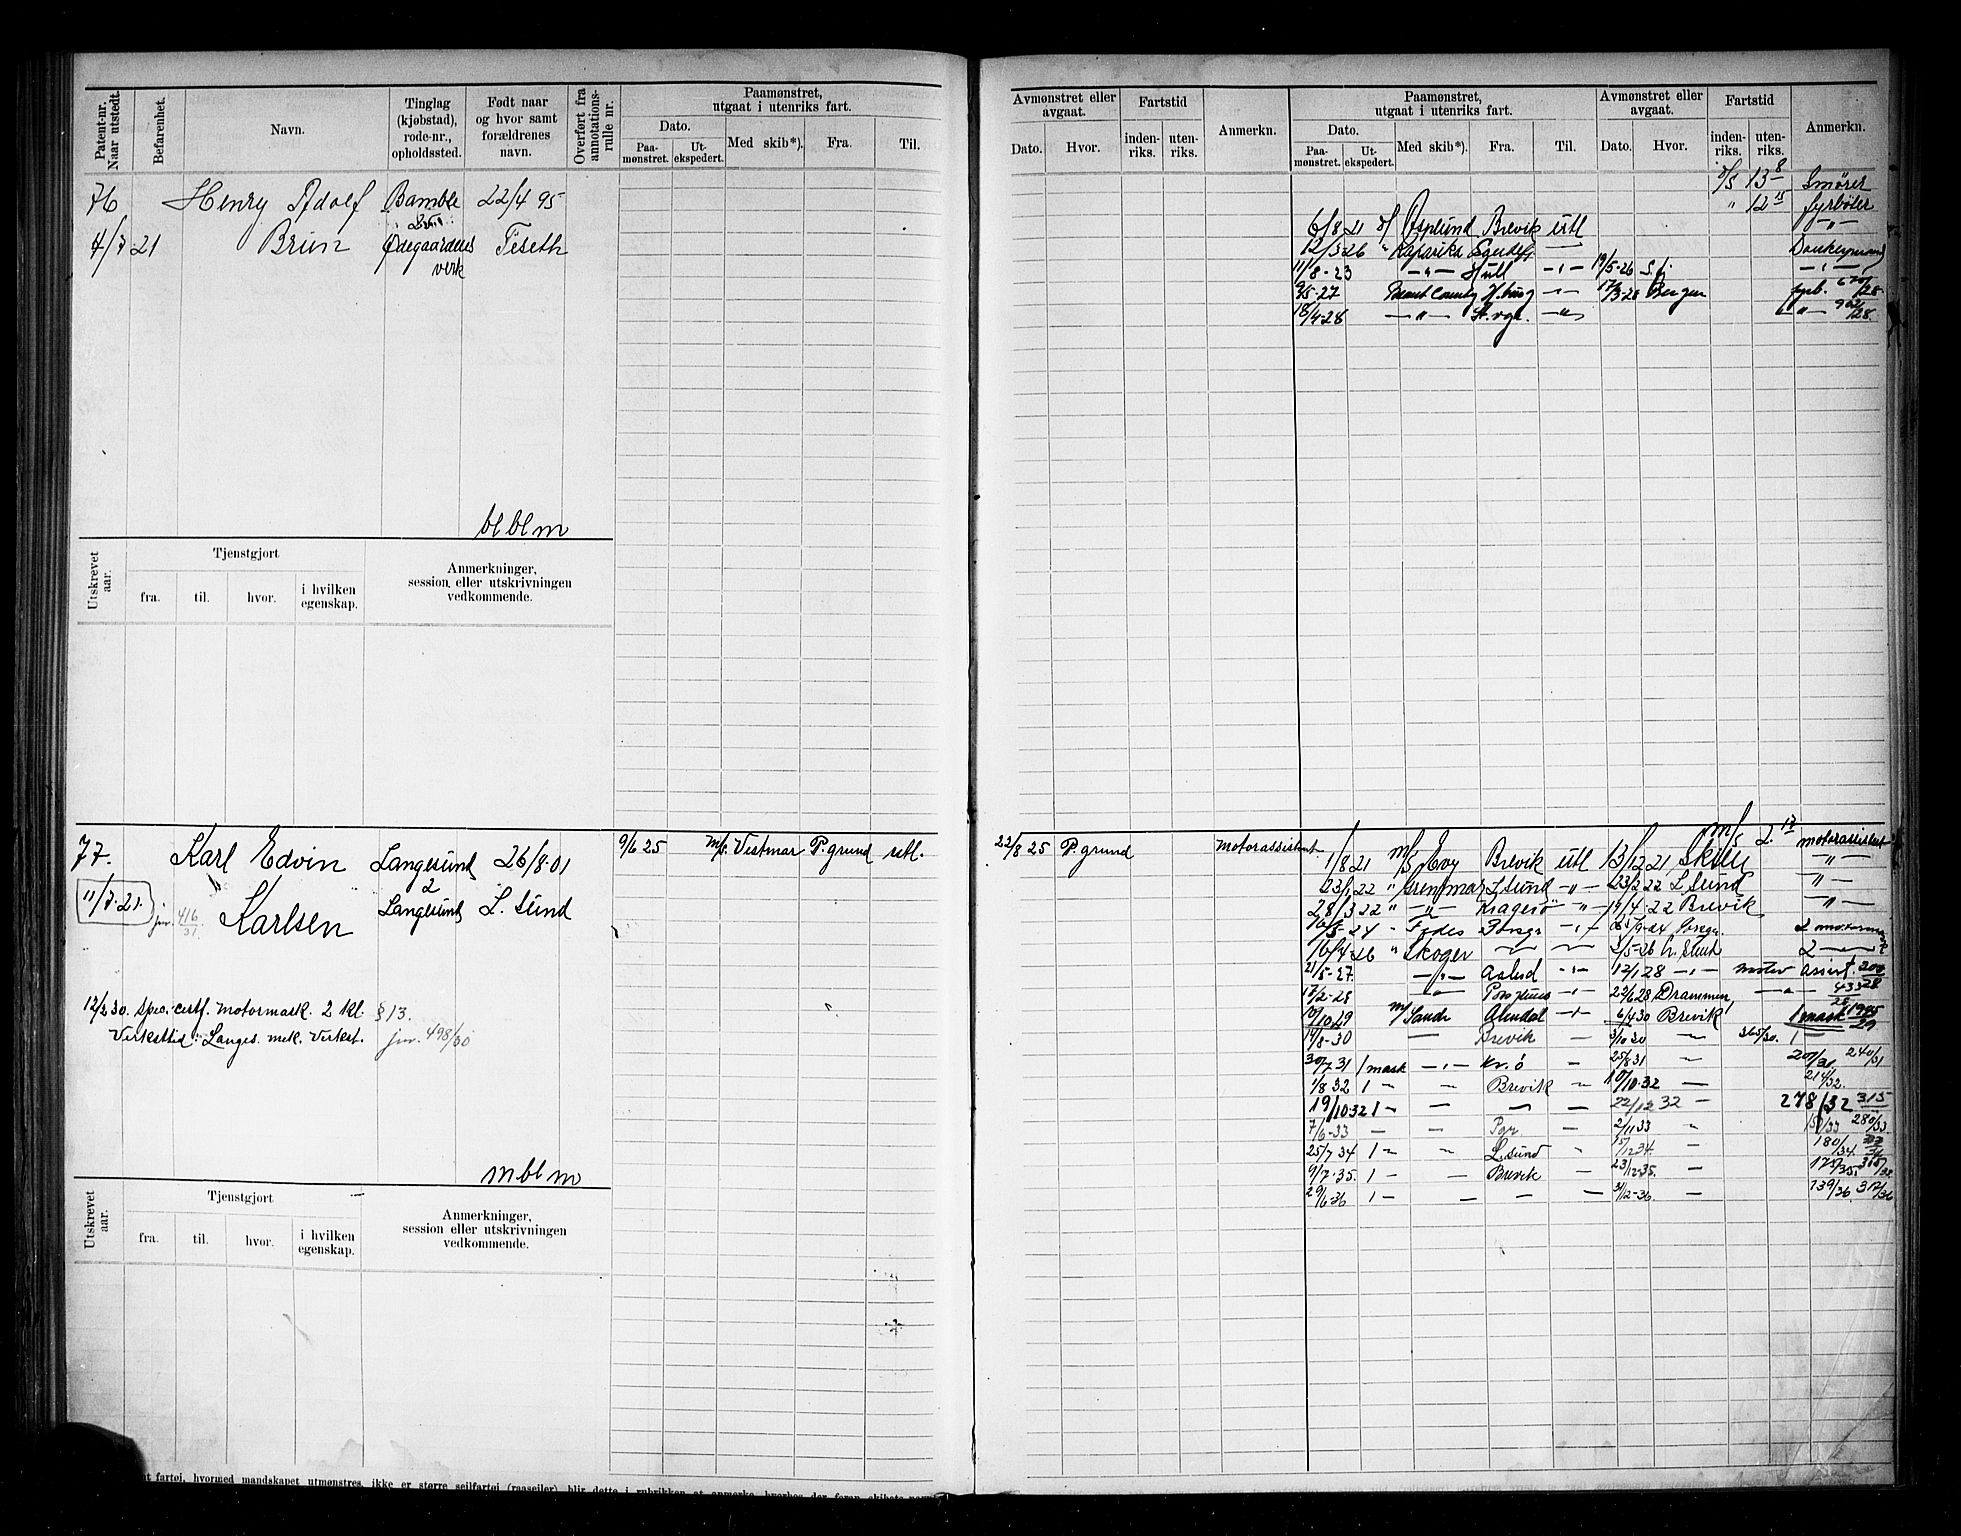 Patent-nr. Naar utstedt.
Befarenhet.
Navn.
Tinglag (kjøbstad), rode-nr., opholdssted.
Født naar og hvor samt forældrenes navn.
Overført fra annotations-rulle nr.
Paamønstret, utgaat i utenriks fart.
Dato.
Paa-mønstret.
Ut-ekspedert.
Med skib*).
Fra.
Til.
76 Henry Adolf Bamble 22/4 95
4/7 21 Brun Ødegaardens verk
bl bl m
Utskrevet aar.
Tjenstgjort
fra. til. hvor. i hvilken egenskap.
Anmerkninger, session eller utskrivningen vedkommende.
77. Karl Edvin Langesund 26/8-01 9/6 25 M/s. Vestmar P.grund utl.
2
11/7-21. jnr. 416/31. Karlsen Langesund L. sund
12/2 30. Spec. certf. motormask. 2 kl. § 13.
Virksttid: Langes. mek. Virkst. jnr. 498/30
m bl m
Utskrevet aar.
Tjenstgjort
fra. til. hvor. i hvilken egenskap.
Anmerkninger, session eller utskrivningen vedkommende.
fartøi, hvormed mandskapet utmønstres, ikke er større seilfartøi (raaseiler), blir dette i rubrikken at anmerke, hvorhos der foran skibets
Avmønstret eller avgaat.
Dato. Hvor.
Fartstid
inden-riks. uten-riks.
Anmerkn.
Paamønstret, utgaat i utenriks fart.
Dato.
Paa-mønstret. Ut-ekspedert. Med skib*). Fra. Til.
Avmønstret eller avgaat.
Dato. Hvor.
Fartstid
inden-riks. uten-riks.
Anmerkn.
D/S 13 8 Smører
" 12 15 fyrbøter
6/8 21 D/ Asplund Brevik utl -"-
12/3 26 " Donkeymand
11/8-23 -"- Hull -"- 19/5-26 -"-
9/5-27 H.burg -"- 17/3-28 Bergen fyrb. 670/28
18/4-28 -"- -"- -"- 962/28.
22/8 25 P.grund Motorassistent
M/s 2. 17 motorassistent
1/8 21 M/S Brevik utl 13/12 21 -"-
23/1 22 " Grenmar L sund -"- 23/2 22 L. sund -"-
28/3 22 " -"- Kragerø -"- 19/4-22 Brevik -"-
16/5-24 Porsgr -"- Porsgr. 2
16/4-26 " Skoger 3/5-26 2
21/5-27. -"- -"- 12/1 28 -"- motor assist. 200/28
17/2-28 -"- -"- 23/6 28 Drammen -"- 433/28
10/10 29 M/ Sande Arendal -"- 6/4 30 Brevik 1 mask 1945/29
19/8-30 — Brevik — 3/10 30 365/30. 1 —
30/7 31 1 mask -"- Kr.ø 25/8 31 240/31
1/8 32 1 Brevik 10/10-32 — 214/32.
19/10 32 1 — — — 22/12 32 — 278/32 315
7/6-33 — — Pgr 2/11 33 280/33.
25/7 34 1 L. sund 15/12 34. — 180/34.
9/7-35. 1 — Brevik — 23/12-35. — 175/35.
29/6-36 1 — — — — 31/12-36. — 139/36. 317/36